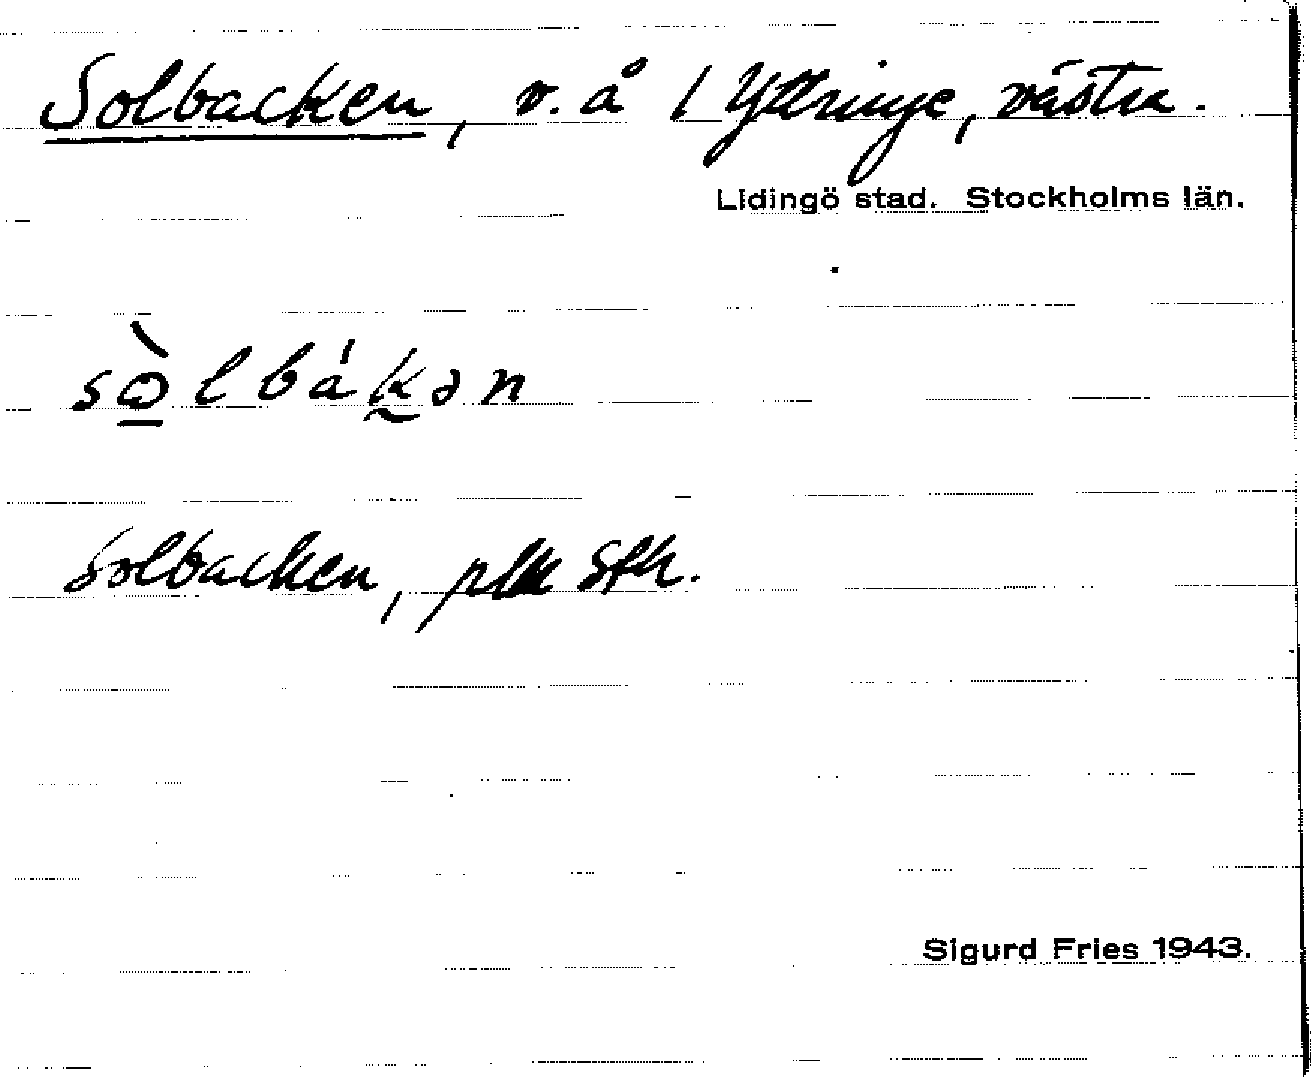 Solbacken, v. å 1 Yttringe, västra.
Lidingö stad. Stockholms län.
sò̱lbákən
Solbacken, plk Sthr.
Sigurd Fries 1943.